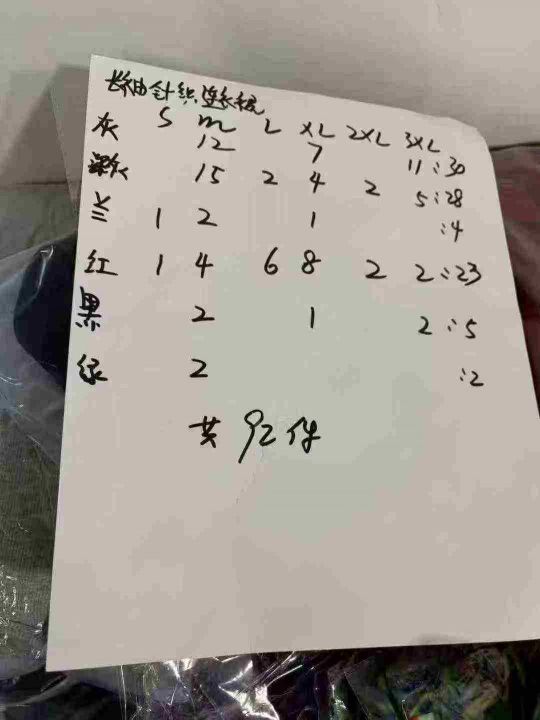 长袖针织连衣裙
S m L XL 2XL 3XL
灰 12 7 11:30
15 2 4 2 5:28
兰 1 2 1 :4
红 1 4 6 8 2 2:23
黑 2 1 2:5
绿 2 :2
共 92件